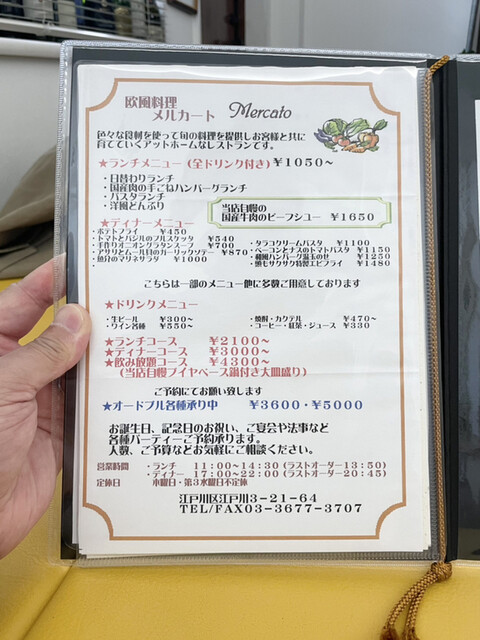 欧風料理
メルカート Mercato
色々な食材を使って旬の料理を提供しお客様と共に
育てていくアットホームなレストランです。
★ランチメニュー (全ドリンク付き) ¥1050~
・日替わりランチ
・国産肉の手ごねハンバーグランチ
・パスタランチ
・洋風どんぶり
当店自慢の
国産牛肉のビーフシュー ¥1650
★ディナーメニュー
・ポテトフライ ¥450
・トマトとバジルのブルスケッタ ¥540
・手作りオニオングラタンスープ ¥700
・アサリとムール貝のガーリックソテー ¥870~
・魚介のマリネサラダ ¥1000
・タラコクリームパスタ ¥1100
・ベーコンとナスのトマトパスタ ¥1150
・和風ハンバーグ温玉のせ ¥1250
・頭もサクサク特製エビフライ ¥1480
こちらは一部のメニュー他に多数ご用意しております
★ドリンクメニュー
・生ビール ¥300~
・ワイン各種 ¥550~
・焼酎・カクテル ¥470~
・コーヒー・紅茶・ジュース ¥330
★ランチコース ¥2100~
★ディナーコース ¥3000~
★飲み放題コース ¥4300~
(当店自慢ブイヤベース鍋付き大皿盛り)
ご予約にてお願い致します
★オードブル各種承り中 ¥3600・¥5000
お誕生日、記念日のお祝い、ご宴会や法事など
各種パーティーご予約承ります。
人数、ご予算などお気軽にご相談ください。
営業時間 ・ランチ 11:00~14:30 (ラストオーダー13:50)
・ディナー 17:00~22:00 (ラストオーダー20:45)
定休日 水曜日・第3木曜日不定休
江戸川区江戸川3-21-64
TEL/FAX03-3677-3707